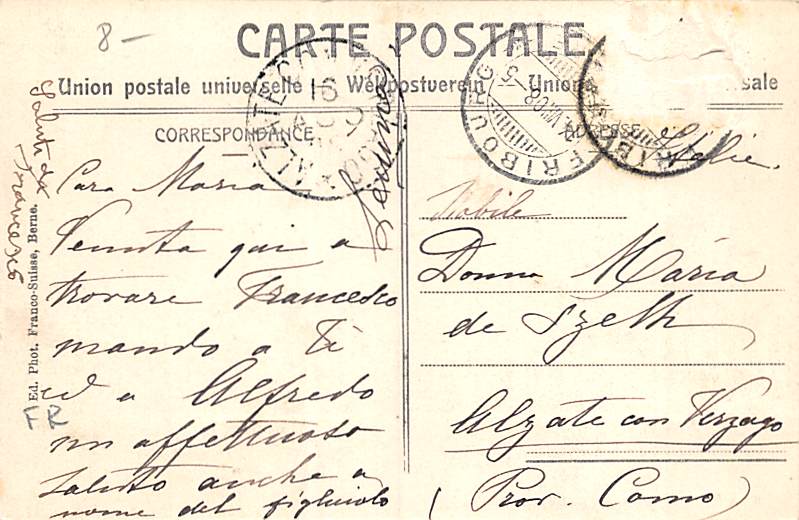 8-
CARTE POSTALE
Union postale universelle - Weltpostverein - Union
sale
CORRESPONDANCE
ADRESSE
ALZATE CON
16
FRIBOURG
VIII.08
Cara Maria
Venuta qui a
trovare Francesco
mando a Ti
ed a Alfredo
un affettuoso
saluto anche a
nome del figliuolo
Saluti da
Francesco
Ed. Phot. Franco-Suisse, Berne.
FR
Italie.
Nobile
Donna Maria
de Szeth
Alzate con Verzago
(Prov. Como)